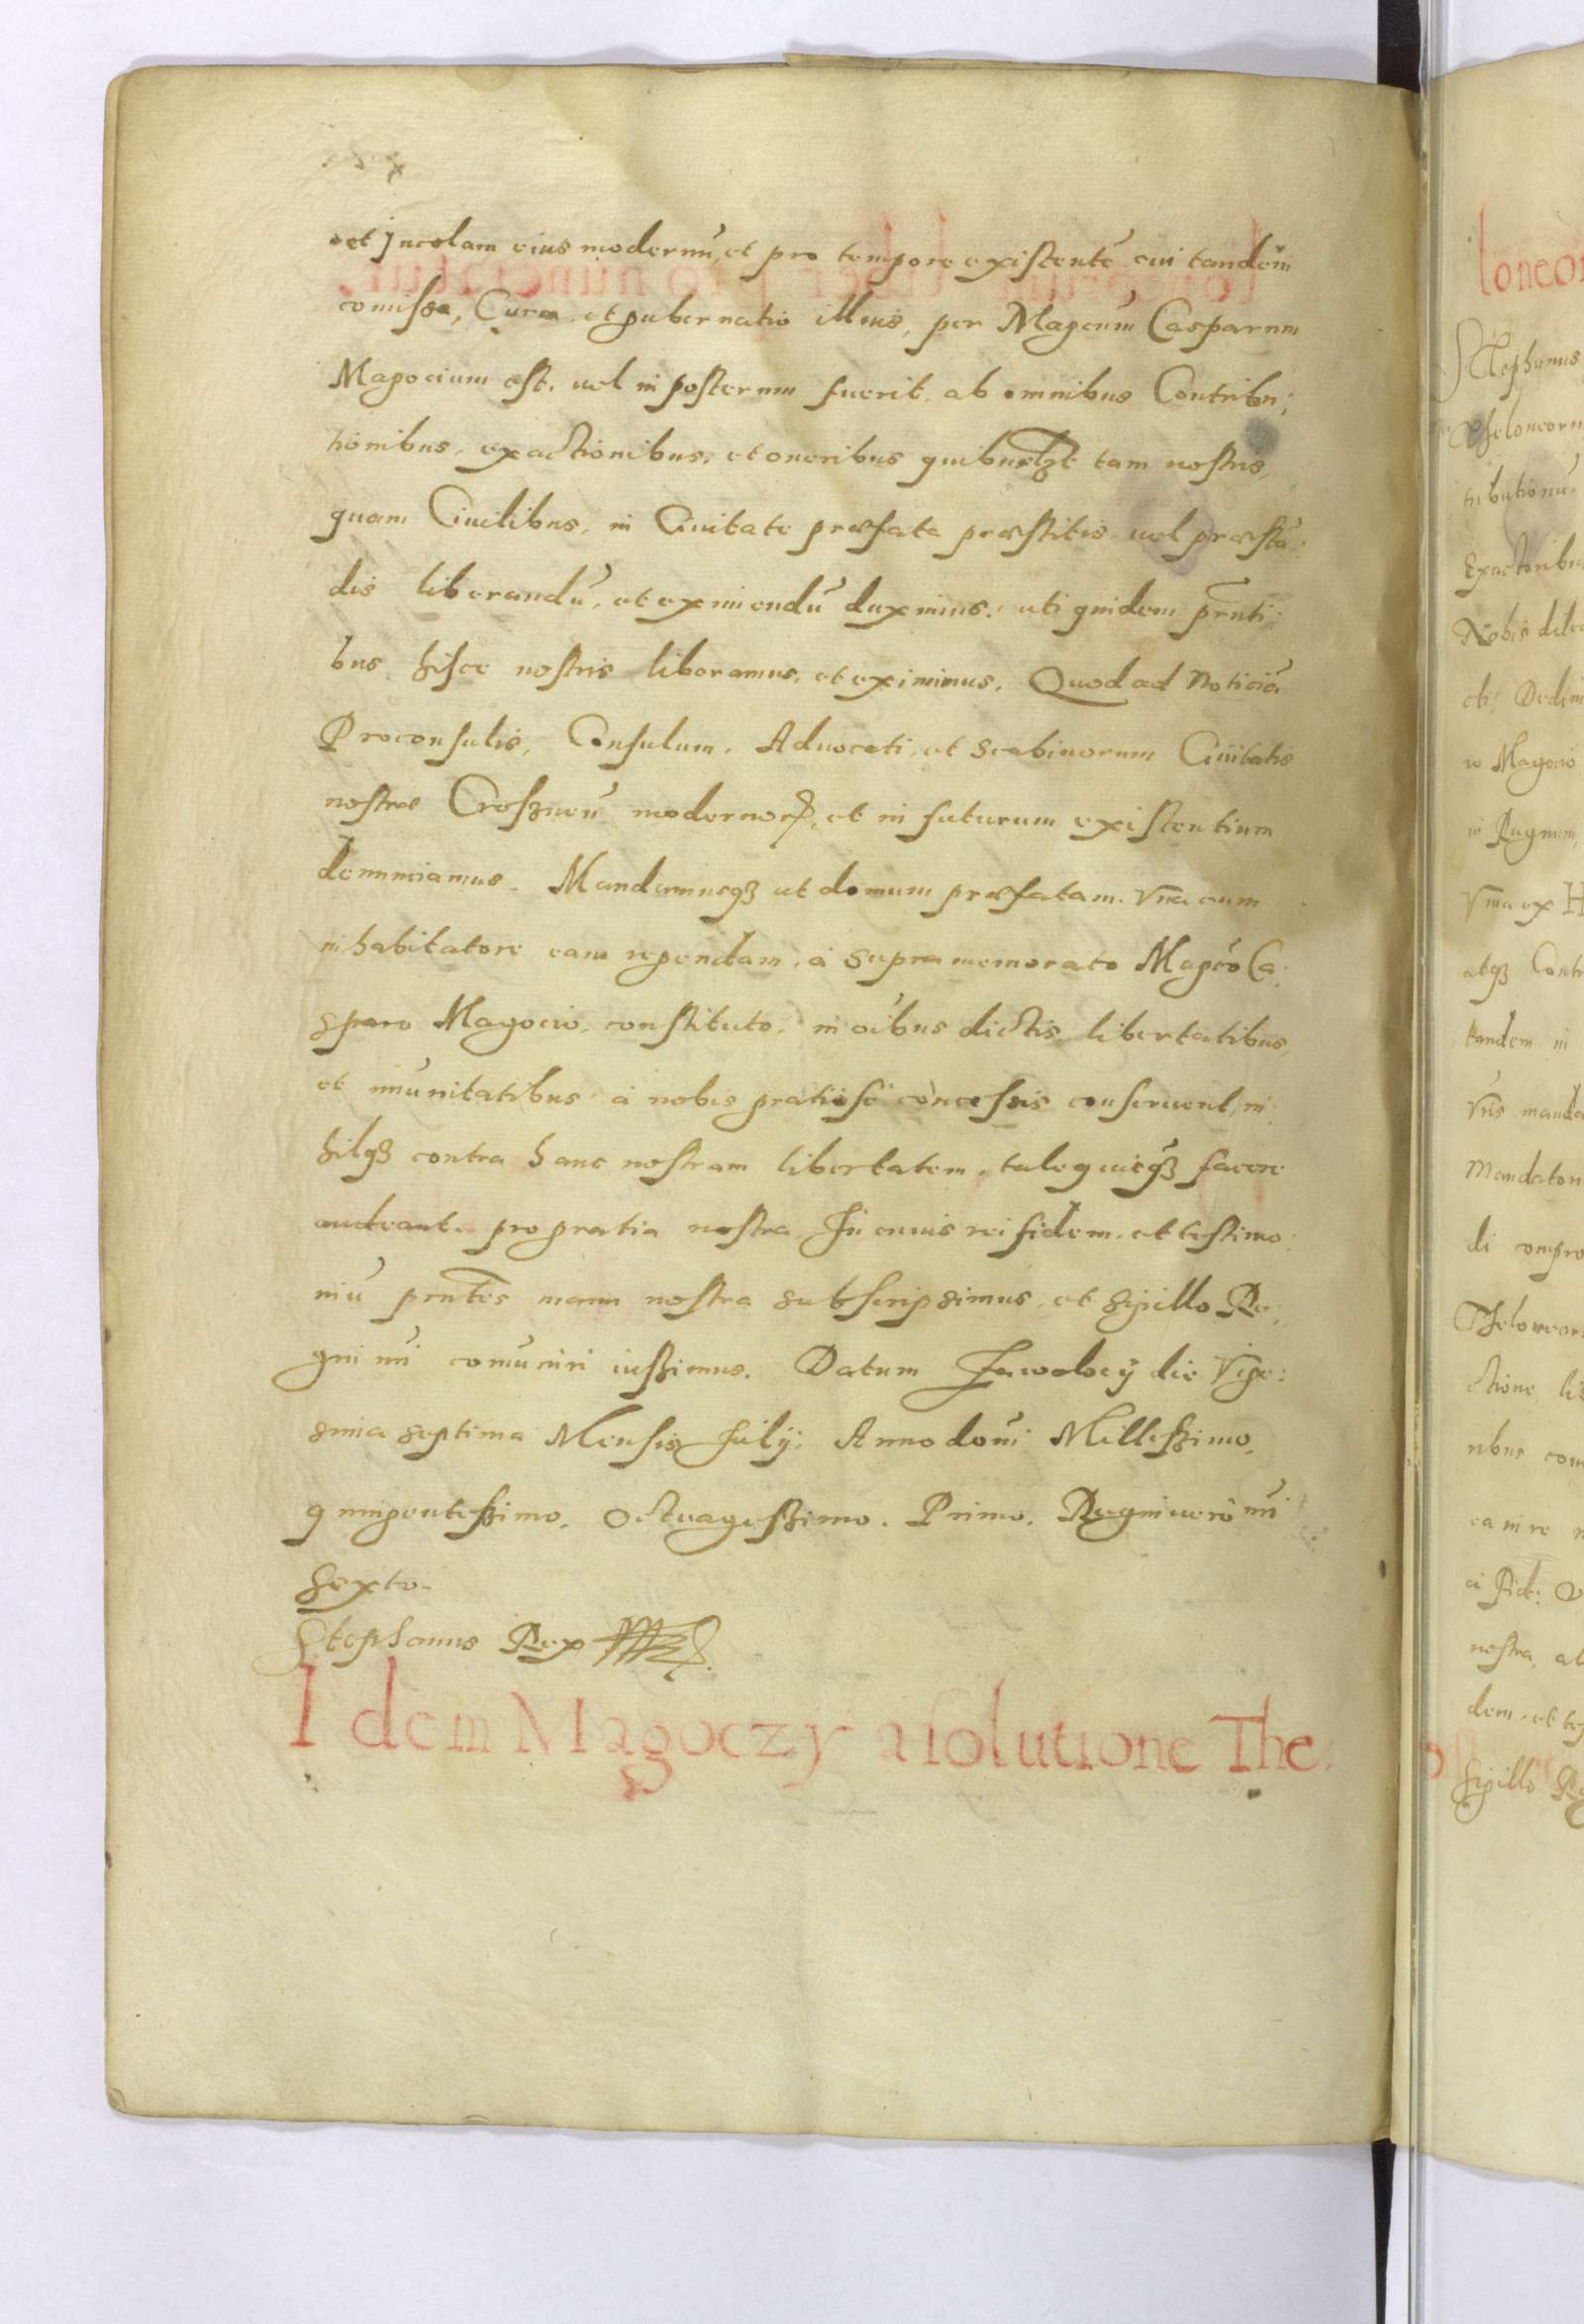 et Jncolam eius modernū, et pro tempore existentē cui tandem
comissa, Cura et gubernatio illius, per Magcum Casparum
Magocium est. uel in posterum fuerit. ab omnibus Contribu:
tionibus, exactionibus, et oneribus quibusuis tam nostris,
quam Ciuilibus, in Ciuitate præfata præstitis uel præstā:
dis liberandū, et eximiendū duximus. uti quidem prnti:
bus hisce nostris liberamus, et eximimus. Quod ad Noticiā
Proconsulis, Consulum. Aduocati et Scabinorum Ciuitatis
nostræ Croszneń modernoꝝ, et in futurum existentium
denunciamus. Mandamusqꝫ ut domum præfatam. Vna cum
inhabitatore eam regendam. á supra memorato Magcō Ca:
sparo Magocio, constituto. in oībus dictis libertatibus,
et imūnitatibus á nobis gratiosé concessis conseruent, ni:
hilqꝫ contra hanc nostram libertatem, tale quicqꝫ facere
audeant. pro gratia nostra. In cuius rei fidem. et testimo:
niū prntes manu nostra subscripsimus, et Sigillo Re:
gni nri comuniri iussimus. Datum Jawolocÿ die Vige:
sima septima Mensis Julÿ. Anno doni Millessimo,
quingentessimo. Octuagessimo. Primo. Regni uero nri
Sexto.
Stephanus Rex
Idem Magoczy a solutione The:
loneo
Stephanus
Theloneorū
tributionū
Exactoribus
Nobis dile
cti: Dedim
o Magocio
in Regnum
Vina ex H
atqꝫ Contr
tandem in
Vris manda
Mandaton
di
Theloneor
ctione lib
ribus com
ea in re n
nostra, at
dem, et tes
Sigillo Re